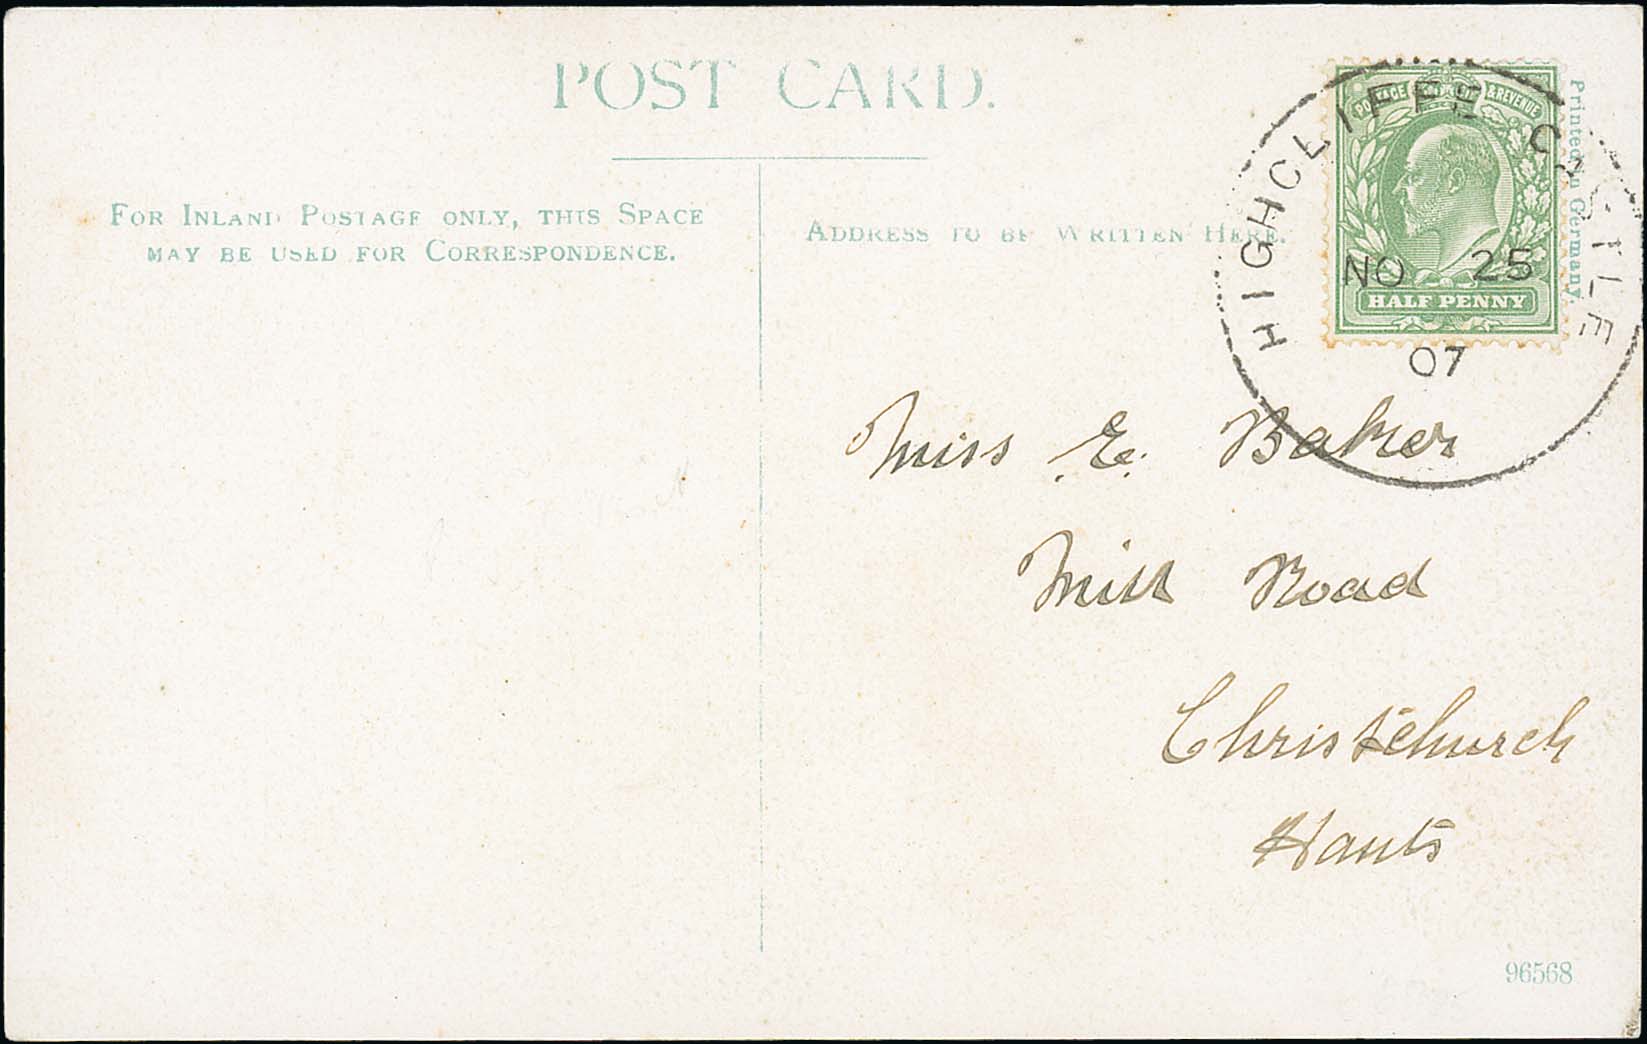 POST CARD.
FOR INLAND POSTAGE ONLY, THIS SPACE
MAY BE USED FOR CORRESPONDENCE.
ADDRESS TO BE WRITTEN HERE.
POSTAGE & REVENUE
HALF PENNY
Printed in Germany.
HIGHCLIFFE CASTLE
NO 25
07
Miss E. Baker
Mill Road
Christchurch
Hants
96568